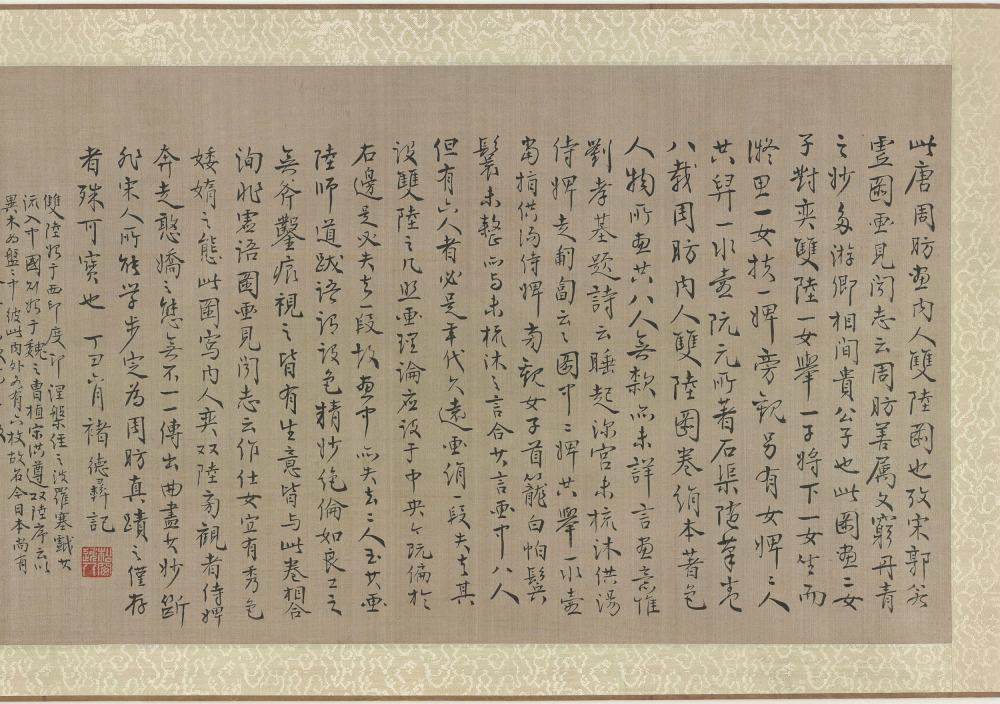 此唐周昉画内人雙陸圖也攷宋郭若
虚圖画見闻志云周昉善属文窮丹青
之妙多游卿相間貴公子也此圖画二女
子對奕雙陸一女舉一子將下一女坐而
凝思一女扶一婢旁观另有女婢二人
共舁一水壺阮元所著石渠随筆卷
八載周昉内人雙陸圖卷绢本著色
人物所画共八人無款亦未詳言画意惟
劉孝基题詩云睡起深宫未梳沐供湯
侍婢走匍匐云云圖中二婢共舉一水壺
當指供湯侍婢而观女子首籠白帕鬓
鬟未整亦与未梳沐之言合其言画中八人
但有六人者必是年代久遠画绢一段失去其
設雙陸之几照画理論应設于中央今既偏於
右邊是必失去一段故画中亦失去二人玉其画
陸師道跋語謂設色精妙绝倫如良工之
無斧鑿痕視之皆有生意皆与此卷相合
洵非虚語圖画見闻志云作仕女宜有秀色
婑媠之態此圖寫内人奕双陸旁観者侍婢
奔走憨嬌之態無不一一傳出曲盡其妙斷
非宋人所能学步定為周昉真蹟之僅存
者殊可寳也 丁丑肖 褚德彝記
雙陸始于西印度即涅槃经之波羅塞戲也
流入中國則始于魏之曹植宋洪遵双陸序云以
異木为盤盤中彼此内外各有六枚故名今日本尚有